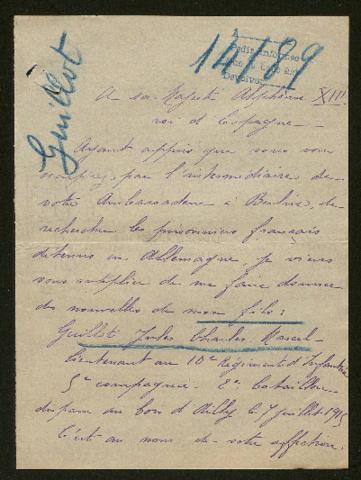 Guillot
14189
A
Devolver
A sa Majesté Alphonse XIII
roi d'Espagne
Ayant appris que vous vous
occupez par l'intermédiaire de
votre Ambassadeur à Berlin, de
rechercher les prisonniers français
détenus en Allemagne, je viens
vous supplier de me faire donner
des nouvelles de mon fils:
Guillot Jules Charles Marcel
lieutenant au 10e Régiment d'Infanterie
5e compagnie. 8e bataillon
disparu au bois d'Ailly le 7 juillet 1915
C'est au nom de votre affection